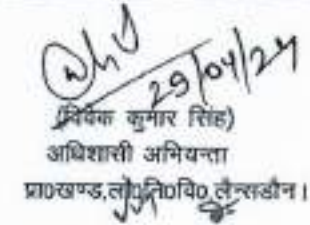 29/04/24
(विवेक कुमार सिंह)
अधिशासी अभियन्ता
प्रा०खण्ड,लो०नि०वि०,लैन्सडौन।